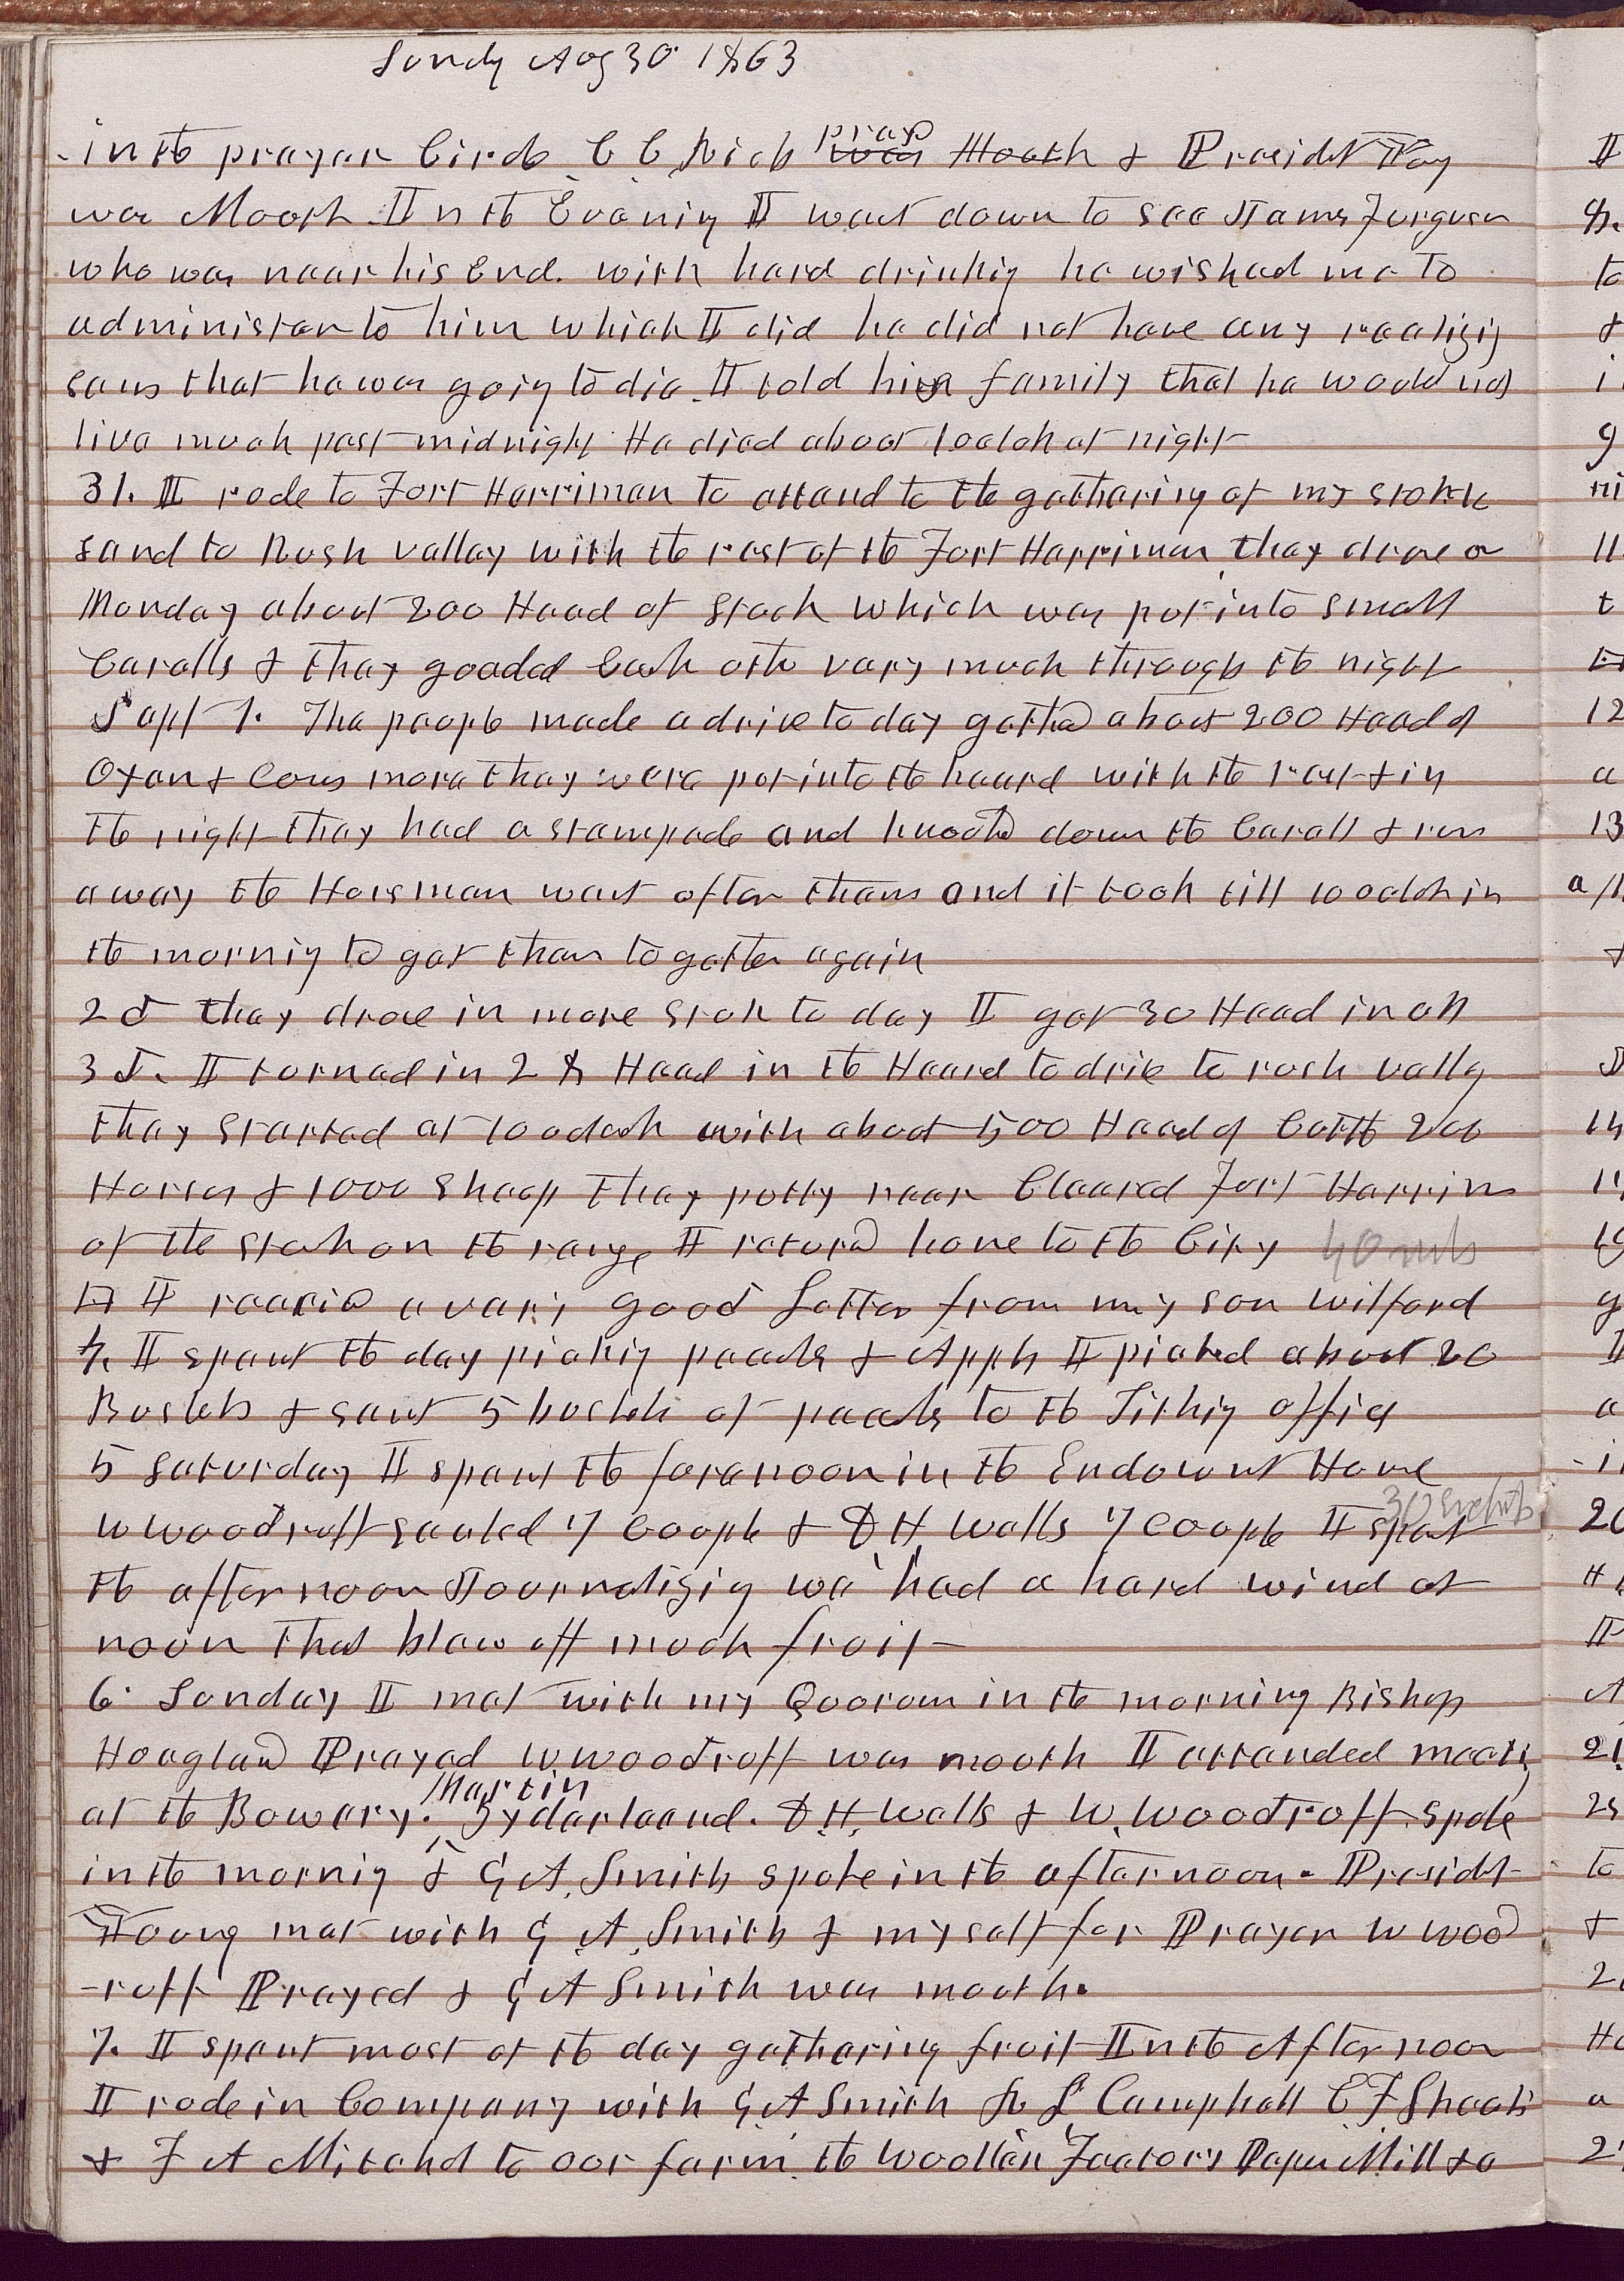 Sondy Aug 30 1863
in the prayer Circle C C Rich prayd was Mouth & Presidet Young
was Mouth. In the Evening I went down to see James Furguson
who was near his End. with hard drinkig he wished me to
administer to him which I did he did not have any realizig
sens that he was going to die. I told his family that he would not
live much past midnight He died about 10 oclok at night
31. I rode to Fort Harriman to attend to the gathering of my stock
send to Rush valley with the rest of the Fort Harriman they drove on
Monday about 200 Head of Stock which was put into small
Caralls & they goaded Each othr very much through the night
Sept 1. The people made a drive to day gathed about 200 Head of
Oxen & Cows more they were put into the heard with the rest & in
the night they had a stampede and knockd down the Carall & run
away the Horsman went after them and it took till 10 oclok in
the mornig to get them together again
2d they drove in more Stok to day I got 30 Head in all
3d. I turned in 28 Head in the Heard to drive to rush vally
they started at 10 oclock with about 500 Head of Cattle 200
Horses & 1000 Sheep They potty near Cleared Fort Harrim
of the stock on the range I returd home to the City 40 mls
I recevd a very good Letter from my son Wilford
4. I spent the day pickig peachs & Appls I picked about 20
Bushels & sent 5 bushels of peachs to the Tithig office
5 Saturday I spent the forenoon in the Endowmt House
W Woodruff sealed 7 Couple & D H Wells 7 Couple I spent
30 Endowts
the afternoon Journalizig we had a hard wind at
noon that blew off much fruit
6. Sonday I met with my Quorum in the morning Bishop
Hoagland Prayed W Woodruff was mouth I attended meetig
at the Bowery. Martin Zyderlaand. D. H. Wells & W. Woodruff spoke
in the mornig & G. A. Smith spoke in the afternoon. Presidt
Young met with G. A. Smith & myself for Prayer W Wood
-ruff Prayed & G A Smith was mouth.
7. I spent most of the day gathering fruit In the Afternoon
I rode in Company with G A Smith R L Campbell
& F A Mitchel to our farm. the woollen Factory Paper Mill & a